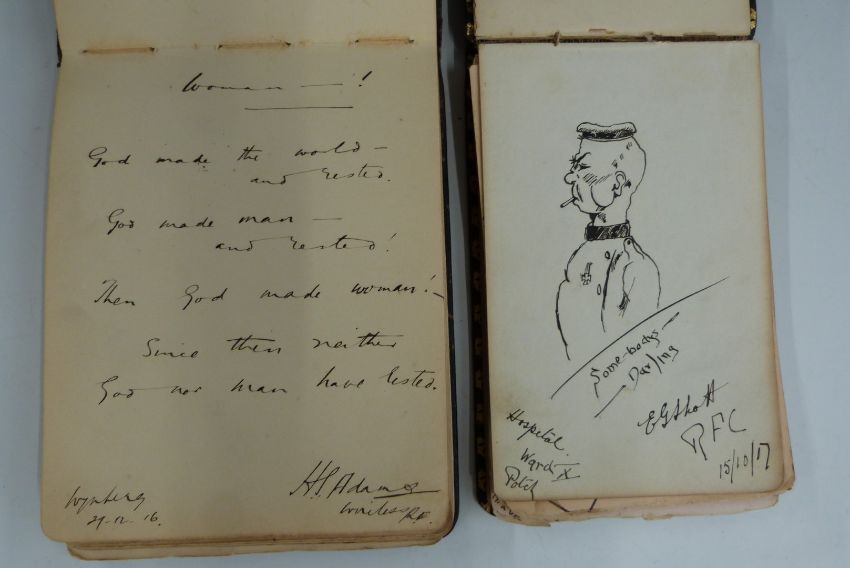 Woman — !
God made the world —
and rested.
God made man —
and rested!
Then God made woman! —
Since then neither
God nor man have rested.
H.S. Adams
Wireless R.E.
Wynberg
29.12.16.
Some-bodys —
— Darling
Hospital.
Ward X
Potch
RFC
15/10/17